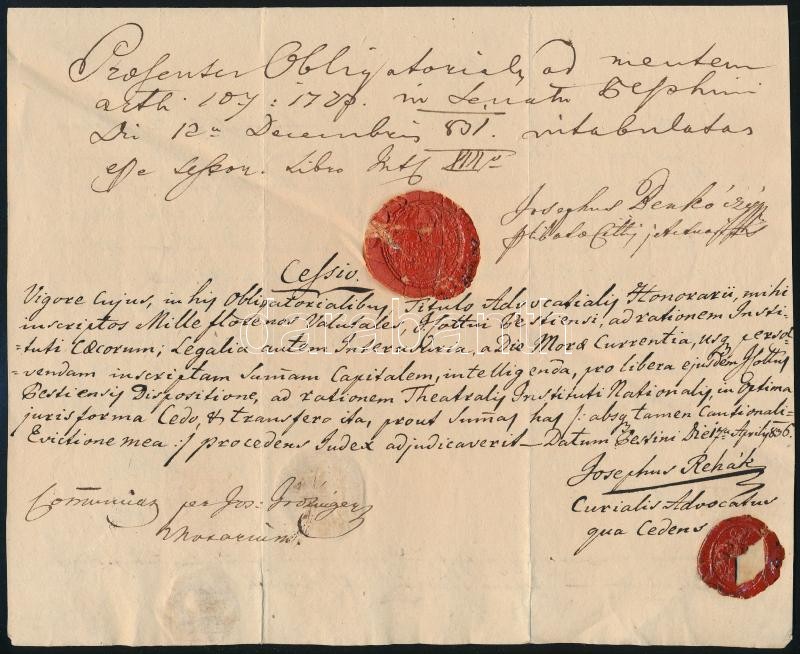 Præsentes Obligatoriales ad mentem
arth: 107: 1723. in Senatu Pesthini
Die 12a Decembris 831. intabulatas
esse testor. Libro Int
Josephus Benkó
Cessio.
Vigore cujus, in his Obligatorialibus Titulo Advocatialis Honorarii, mihi
inscriptos Mille florenos Valutales, Hottui Pestiensi, ad rationem Insti-
-tuti Cæcorum; Legalia autem Interusuria, a Die Moræ Currentia, usq perso-
-vendam inscriptam Sum̃am Capitalem, intelligenda, pro libera ejusdem Hottus
Pestiensis Dispositione, ad rationem Theatralis Instituti Nationalis, in Optima
juris forma Cedo, & transfero ita, prout Sum̃as has /: absq tamen Cautionali-
Evictione mea :/ procedens Judex adjudicaverit _ Datum Pestini Die 17a Aprilis 836.
Josephus Rehák
Curialis Advocatus
qua Cedens
per Jos:
Notarium
darabanth